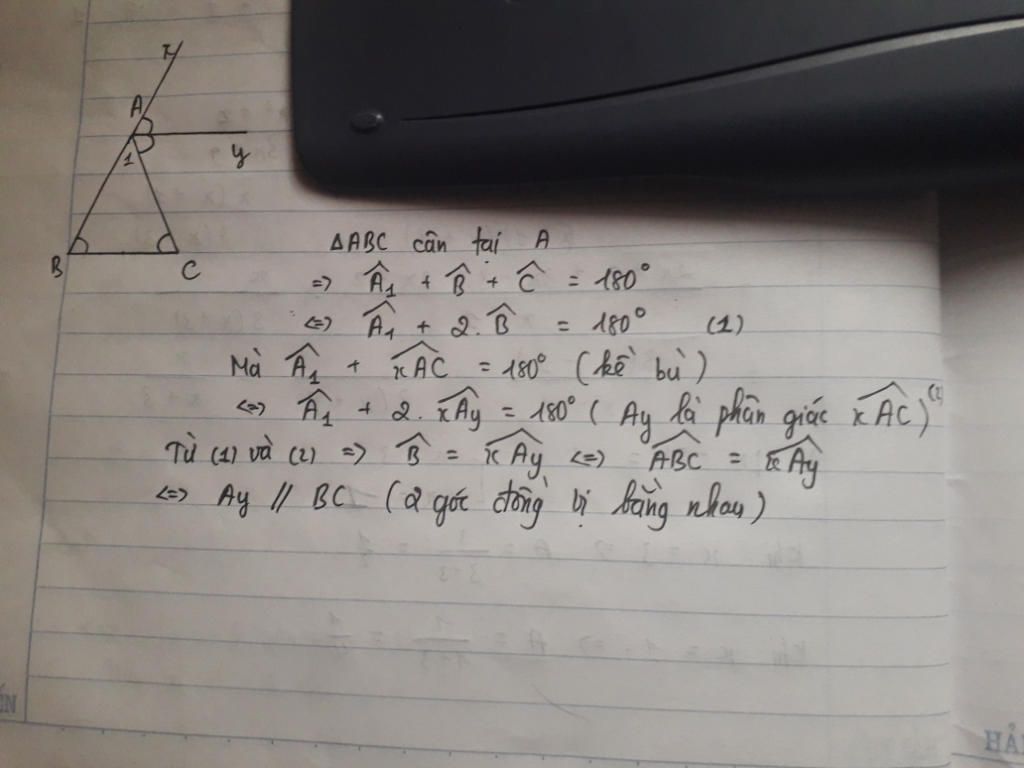 x
A
1
y
B
C
ΔABC cân tại A
=> Â₁ + B̂ + Ĉ = 180°
<=> Â₁ + 2.B̂ = 180° (1)
Mà Â₁ + \widehat{xAC} = 180° (kề bù)
<=> Â₁ + 2.\widehat{xAy} = 180° (Ay là phân giác \widehat{xAC}) (2)
Từ (1) và (2) => B̂ = \widehat{xAy} <=> \widehat{ABC} = \widehat{xAy}
<=> Ay // BC (2 góc đồng vị bằng nhau)